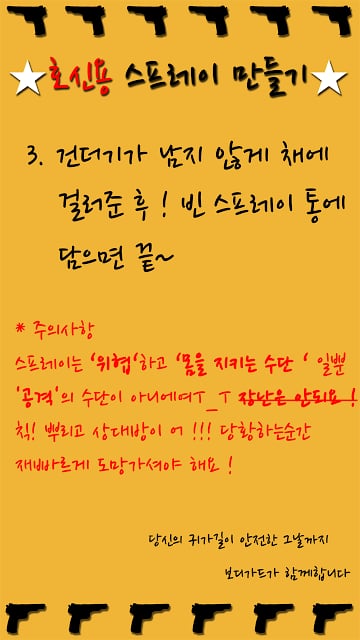 ★호신용 스프레이 만들기★
3. 건더기가 남지 않게 채에
걸러준 후 ! 빈 스프레이 통에
담으면 끝~
* 주의사항
스프레이는 '위협'하고 '몸을 지키는 수단 ' 일뿐
'공격'의 수단이 아니에여T_T 장난은 안되요 !
칙! 뿌리고 상대방이 어 !!! 당황하는순간
재빠르게 도망가셔야 해요 !
당신의 귀가길이 안전한 그날까지
보디가드가 함께합니다